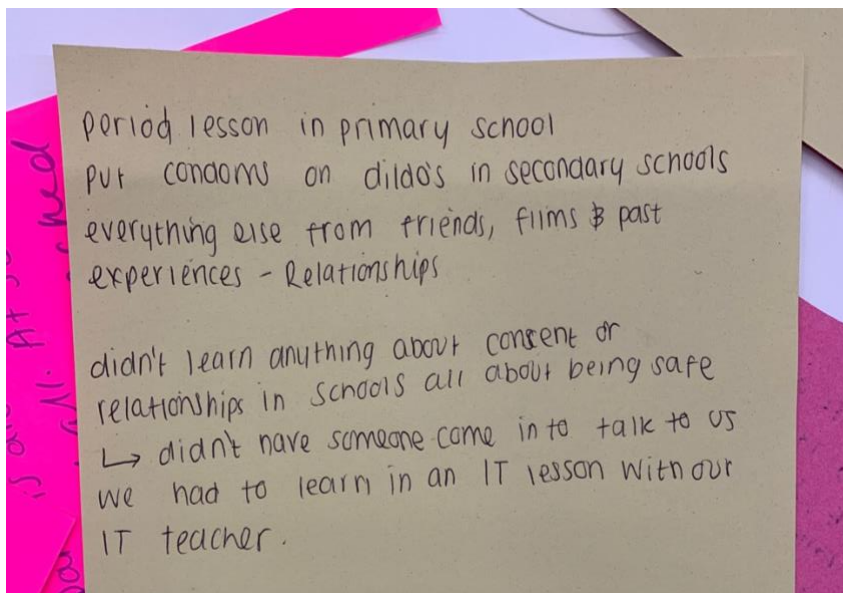 period lesson in primary school
put condoms on dildo's in secondary schools
everything else from friends, films & past
experiences - Relationships
didn't learn anything about consent or
relationships in schools all about being safe
↳ didn't have someone come in to talk to us
we had to learn in an IT lesson with our
IT teacher.